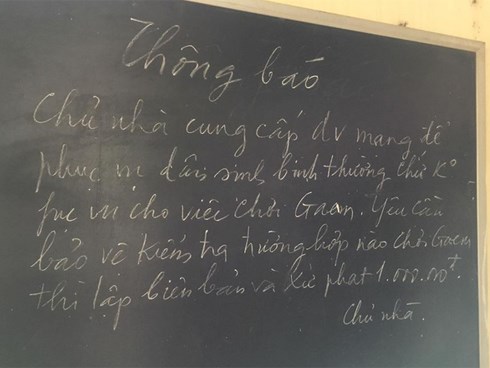 Thông báo
Chủ nhà cung cấp dv mạng để
phục vụ dân sinh bình thường chứ K°
fục vụ cho việc chơi Gaem. Yêu cầu
bảo vệ kiểm tra trường hợp nào chơi Gaem
thì lập biên bản và xử phạt 1.000.000đ.
Chủ nhà.